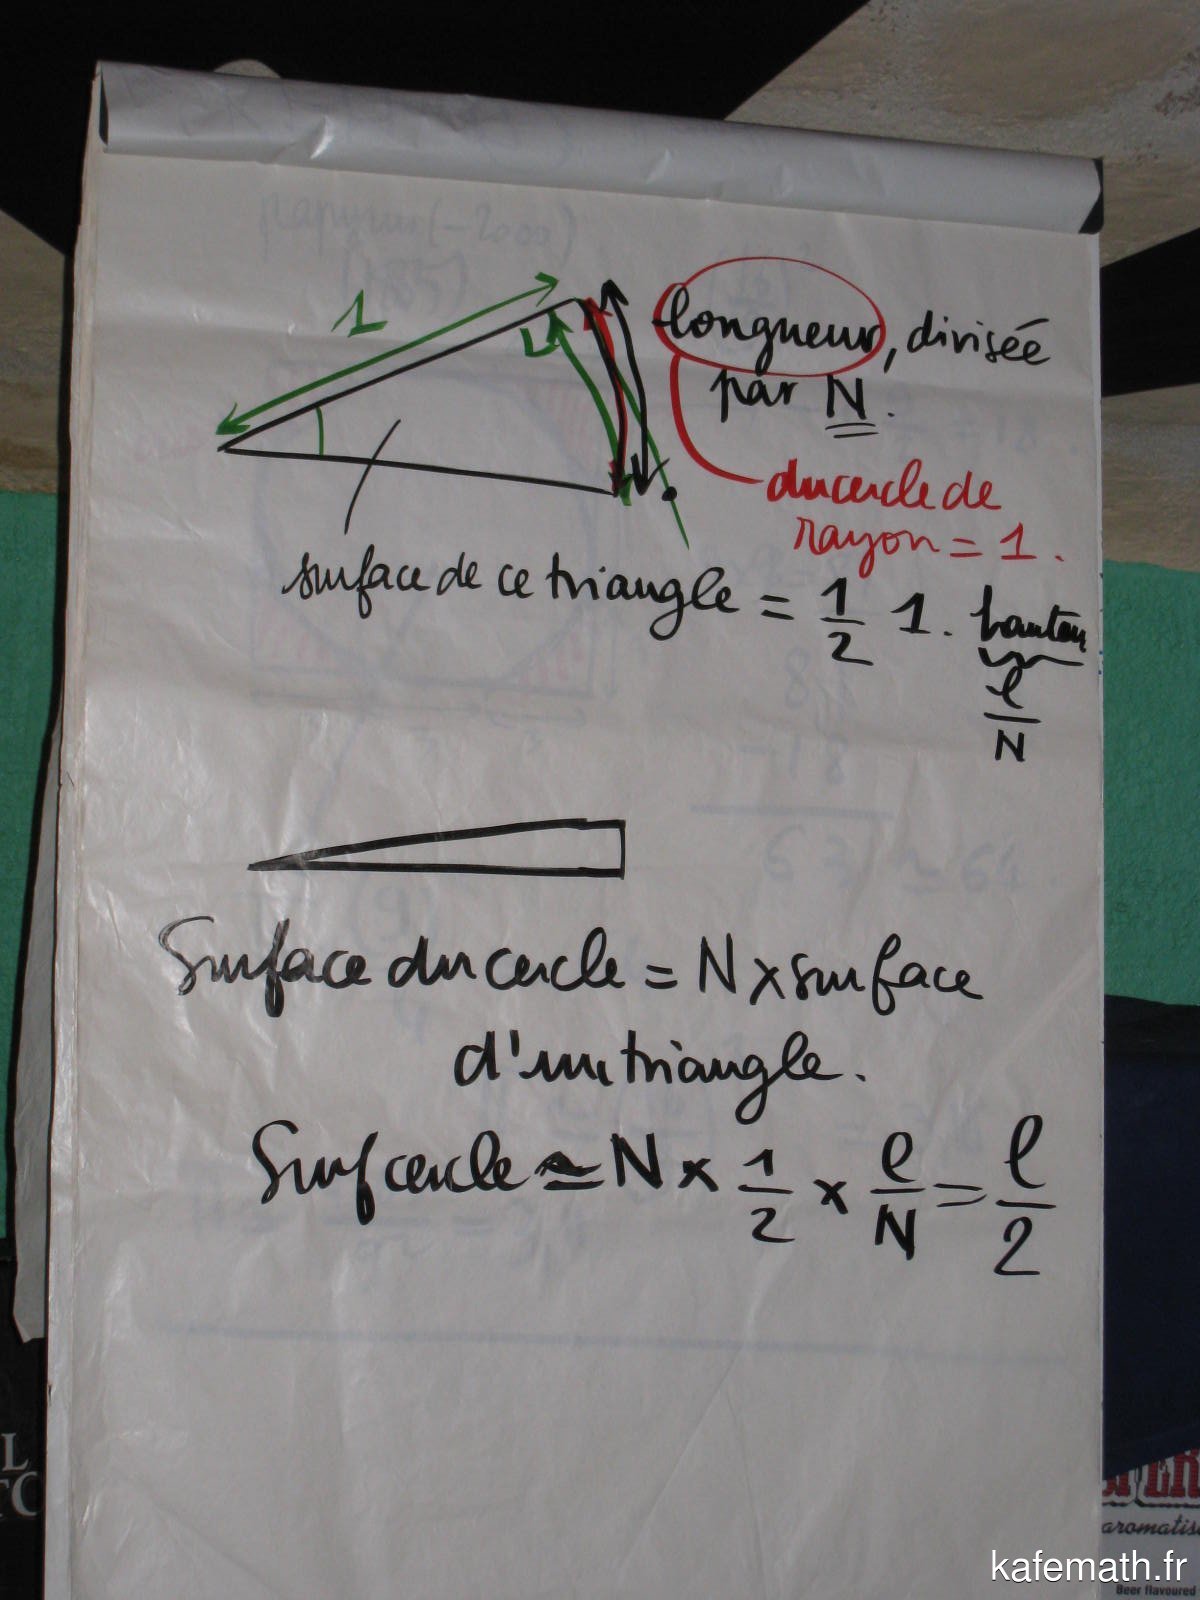 1
longueur, divisée
par N.
du cercle de
rayon = 1.
surface de ce triangle = 1/2 1. hauteur
l/N
Surface du cercle = N x surface
d'un triangle.
Surf cercle ≃ N x 1/2 x l/N = l/2
aromatis
Beer flavoured
kafemath.fr